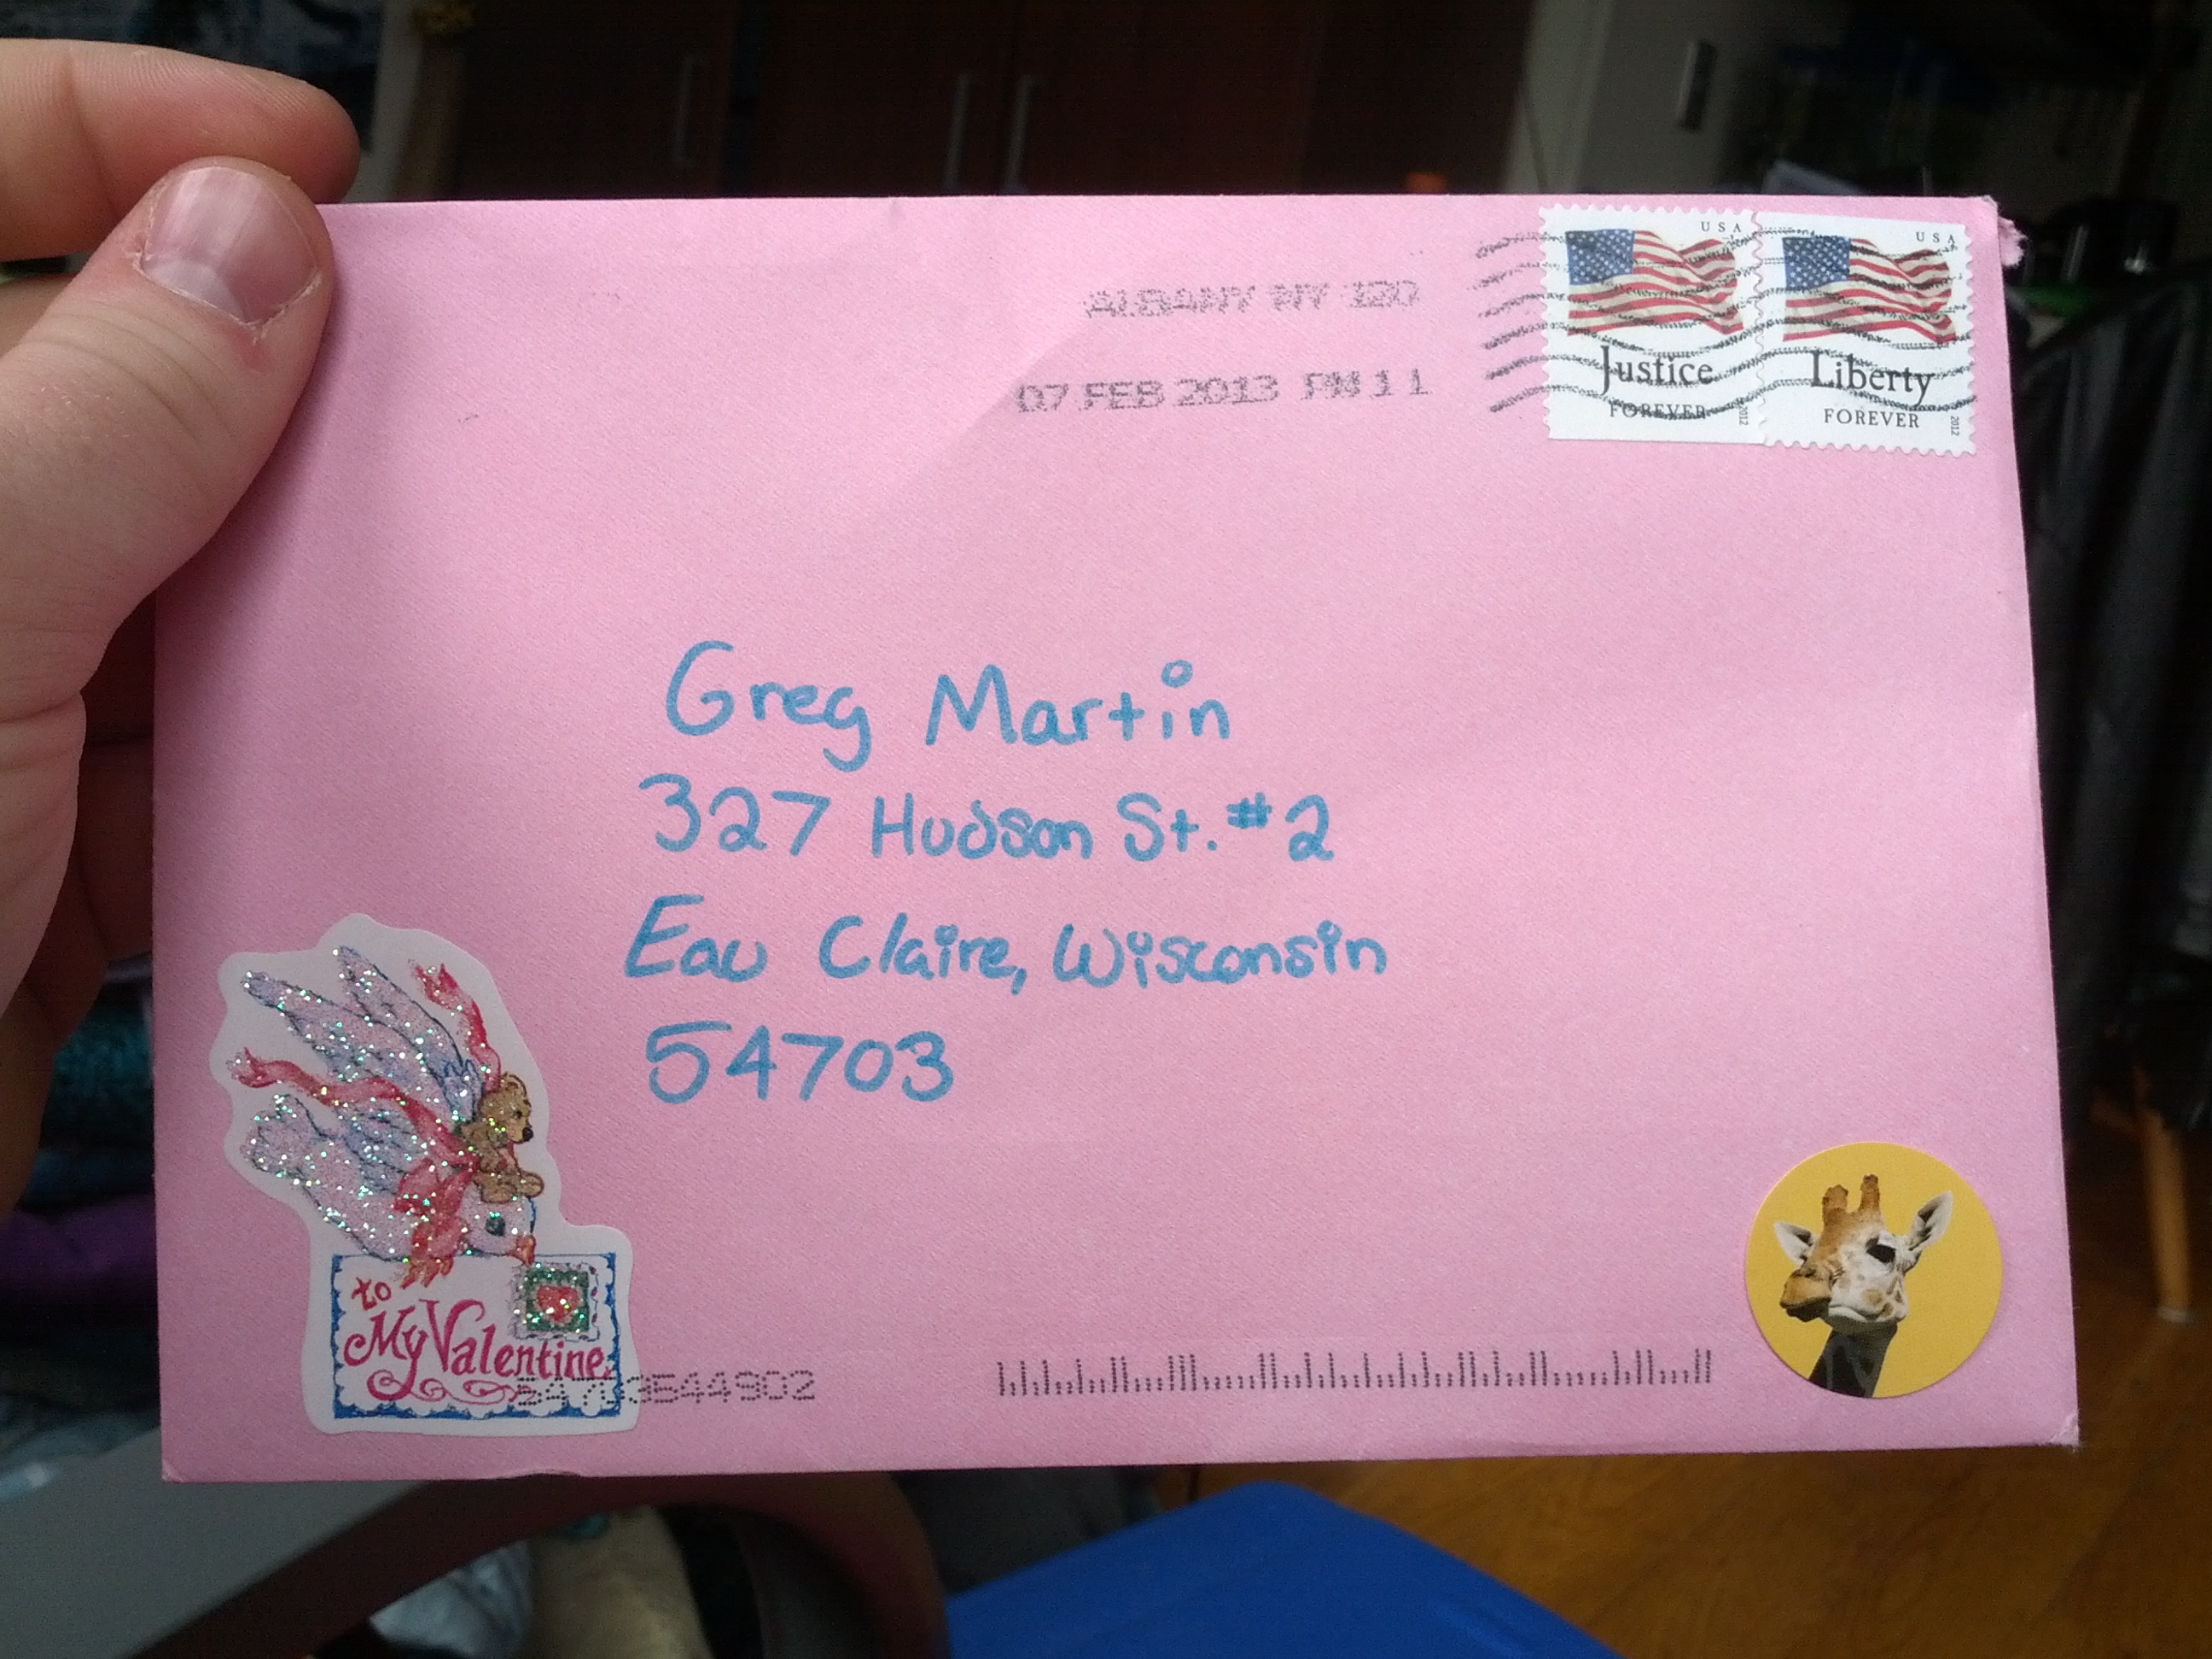 ALBANY NY 120
07 FEB 2013 PM 11
USA
Justice
FOREVER
2012
USA
Liberty
FOREVER
2012
Greg Martin
327 Hudson St. #2
Eau Claire, Wisconsin
54703
to
My Valentine
54703544902